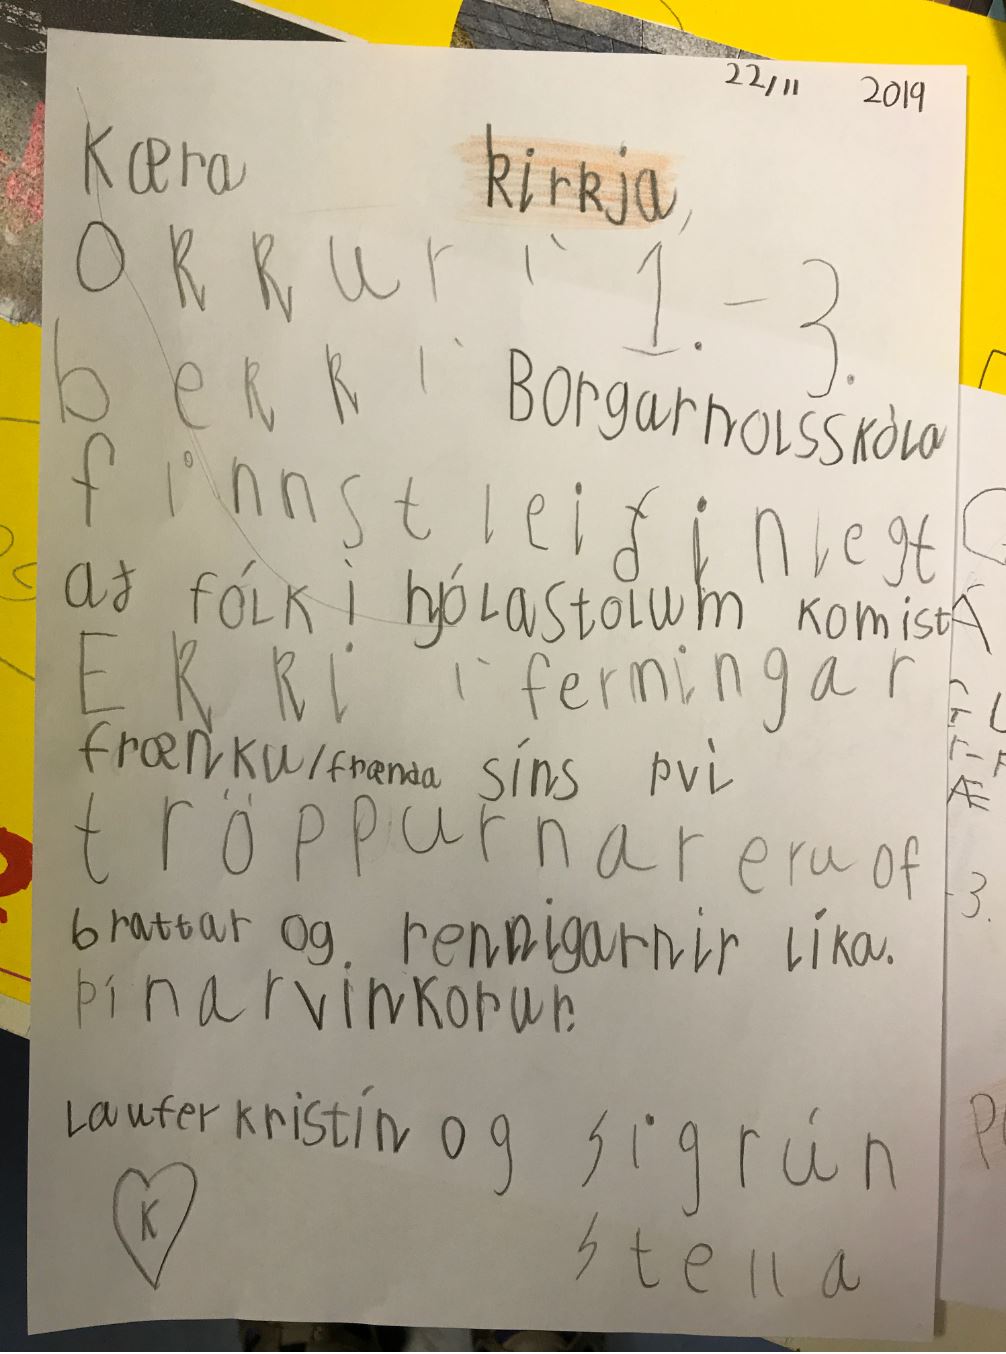 22/11 2019
Kæra kirkja,
Okkur í 1. - 3.
bekki í Borgarholsskóla
finnst leiðinlegt
að fólk í hjólastolum komist
Ekki í fermingar
frænku/frænda síns þvi
tröppurnar eru of
brattar og rennigarnir líka.
þínar vinkonur.
Laufer kristín og sigrún
K stella
3.